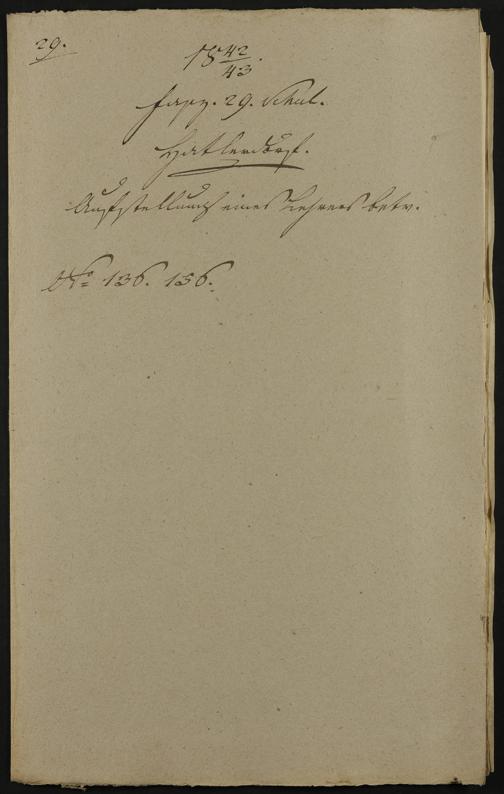 29.
18 42/43.
Fasz. 29. Schul.
Hatlerdorf.
Aufstellung eines Lehrers betr.
No 136. 156.